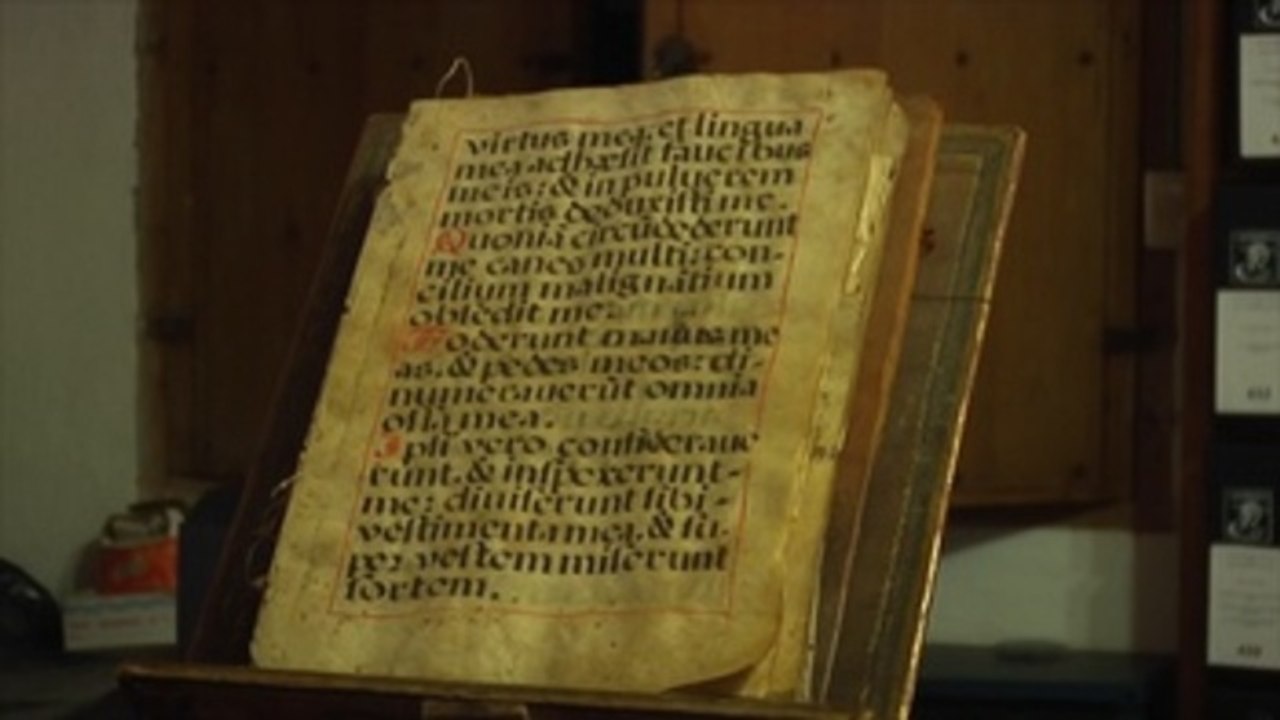 virtus mea, et lingua
mea adhæsit faucibus
meis: & in puluerem
mortis deduxisti me.
Quoniā circūdederunt
me canes multi: con-
cilium malignātium
obsedit me.
Foderunt manus me
as, & pedes meos: di-
numerauerūt omnia
ossa mea.
Ipsi vero consideraue
runt, & inspexerunt-
me: diuiserunt sibi-
vestimenta mea, & su-
per vestem miserunt
sortem.